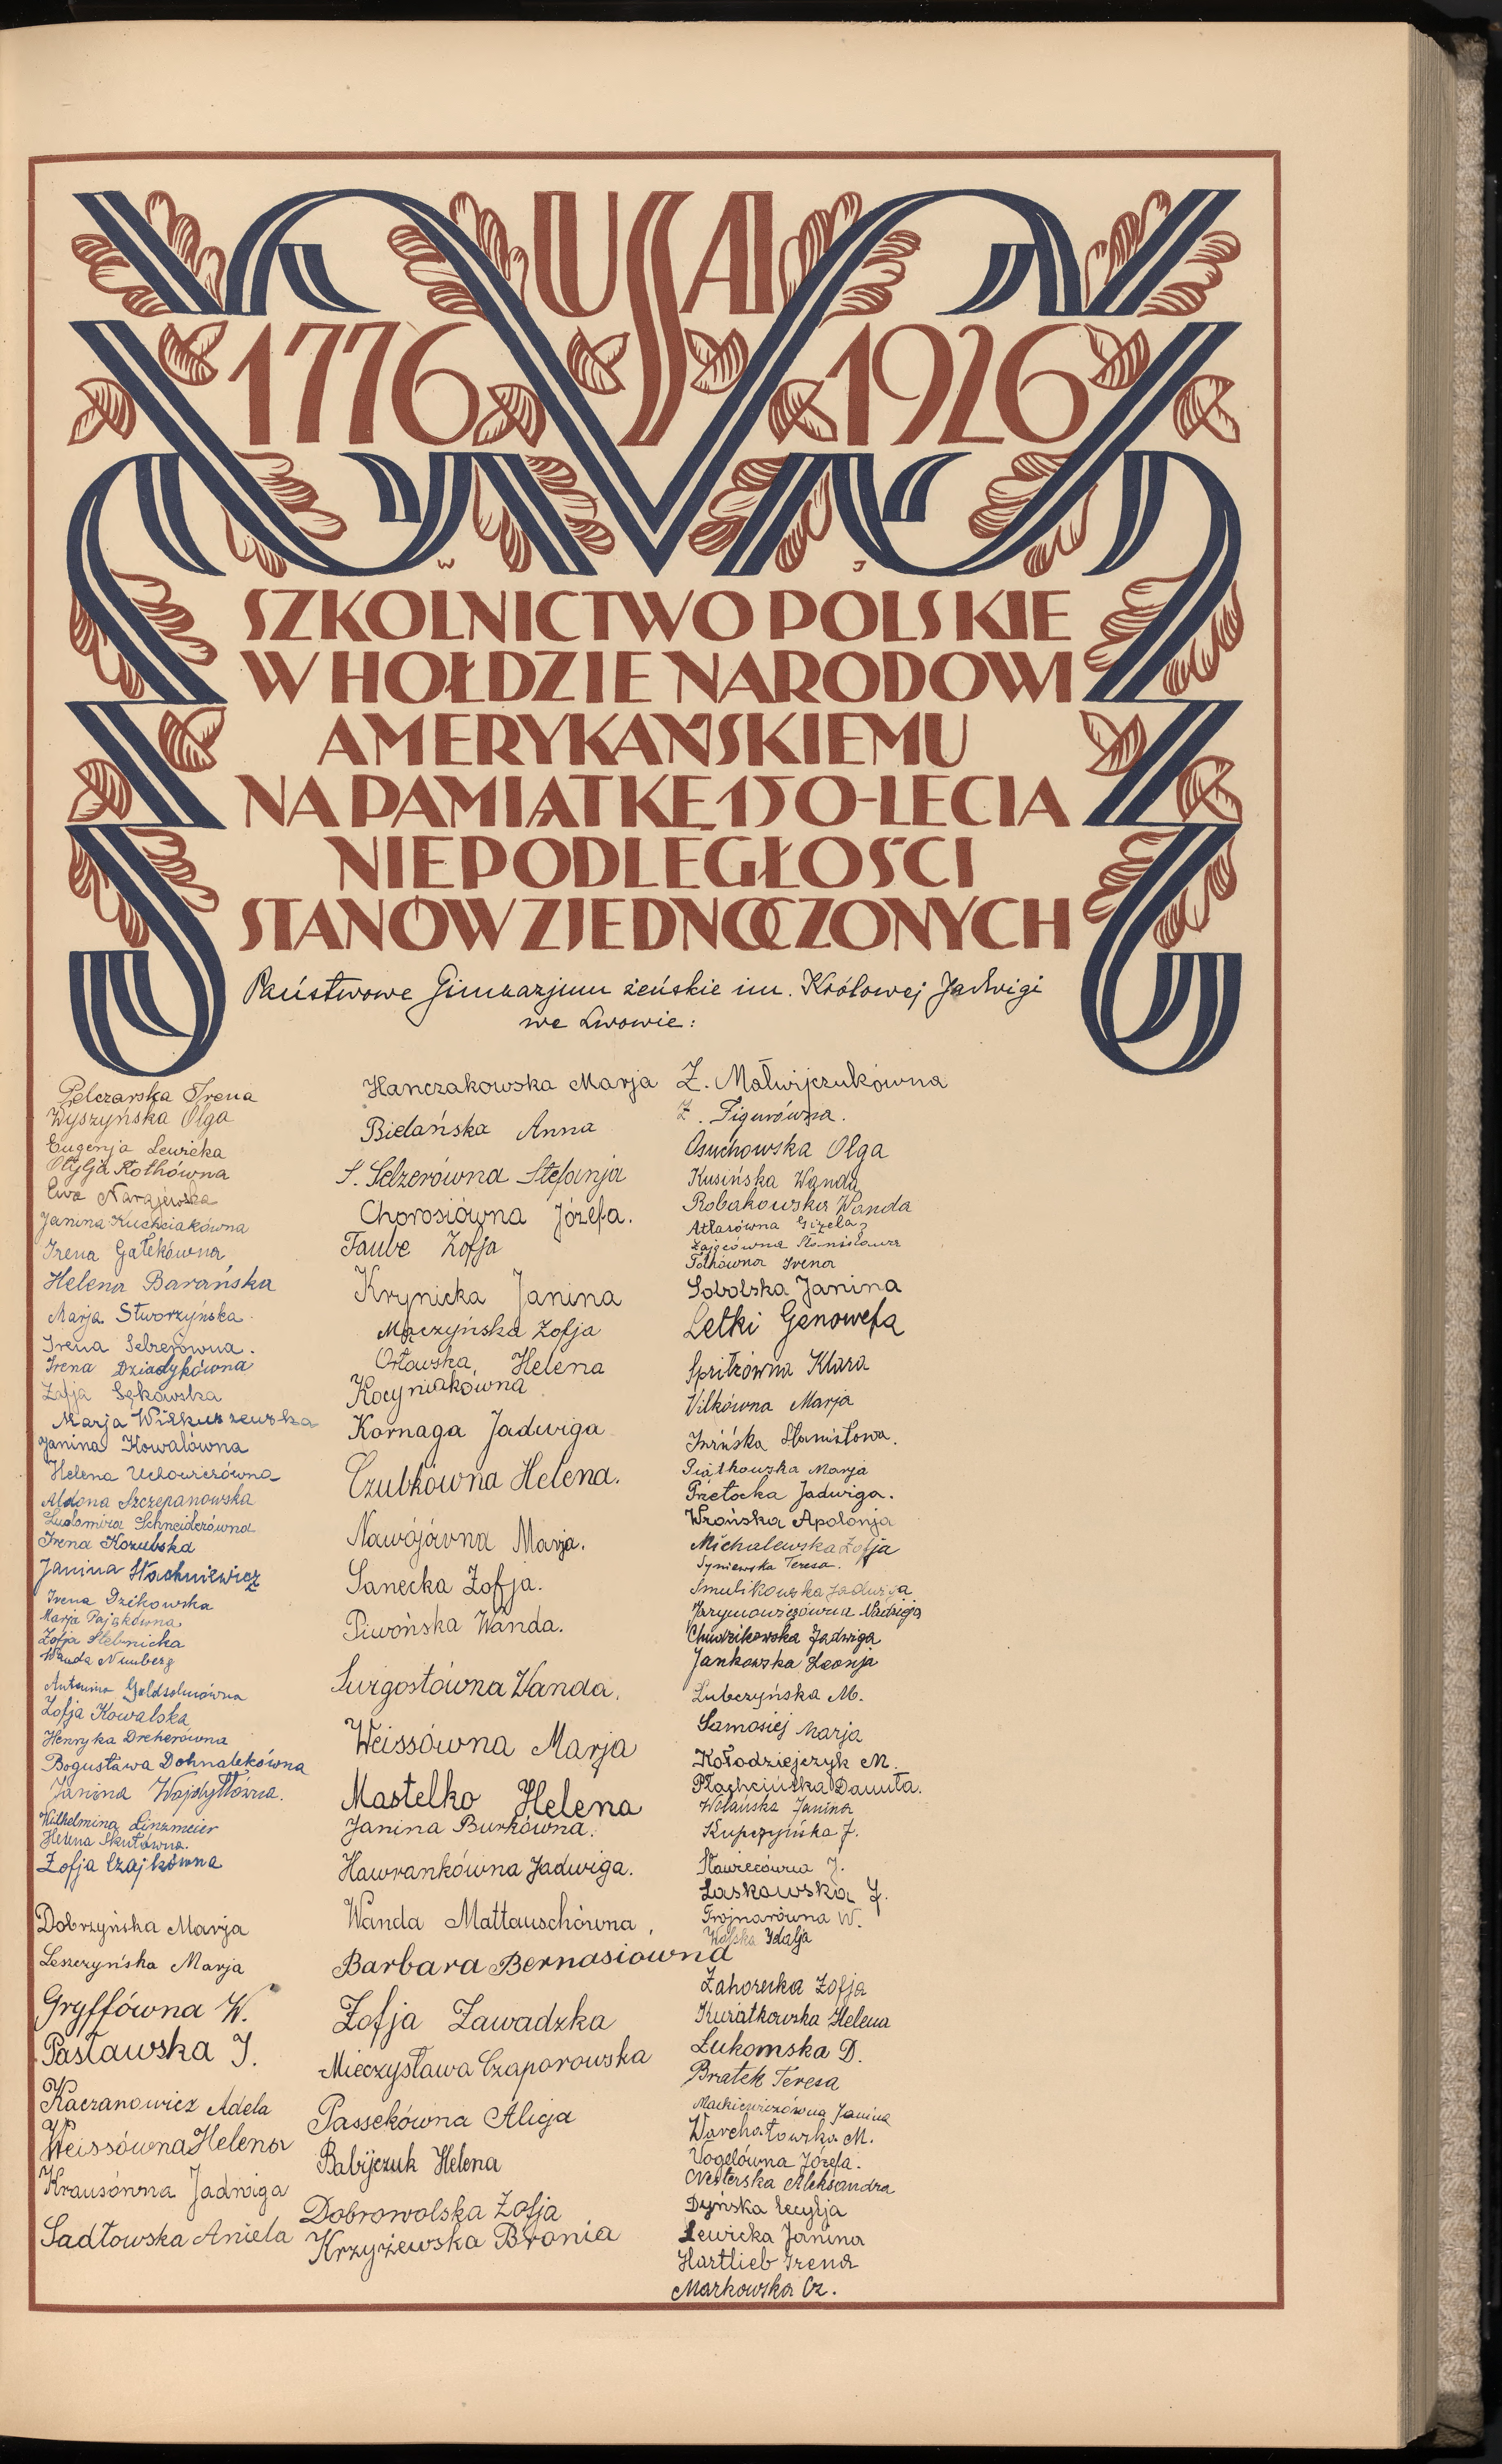 USA
1776 1926
W J
SZKOLNICTWO POLSKIE
W HOŁDZIE NARODOWI
AMERYKAŃSKIEMU
NA PAMIĄTKĘ 150-LECIA
NIEPODLEGŁOŚCI
STANÓW ZJEDNOCZONYCH
Państwowe Gimnazjum żeńskie im. Królowej Jadwigi
we Lwowie:
Pelczarska Irena
Wyszyńska Olga
Eugenja Lewicka
Otylja Rothówna
Ewa Narajewska
Janina Kuchciakówna
Irena Gałekówna
Helena Barańska
Marja Stworzyńska
Irena Selzerówna.
Irena Dziadykówna
Zofja Sękowska
Marja Wilkuszewska
Janina Kowalówna
Helena Uchowiczówna
Aldona Szczepanowska
Ludomira Schneiderówna
Irena Kozubska
Janina Stachniewicz
Irena Dzikowska
Marja Pająkówna
Zofja Stebnicka
Wanda Nunberg
Antonina Goldsohnówna
Zofja Kowalska
Henryka Dreherówna
Bogusława Dohnalekówna
Janina Wojdyłłówna.
Wilhelmina Linzmeier
Helena Skutówna.
Zofja Czajkówna
Dobrzyńska Marja
Leszczyńska Marja
Gryffówna W.
Pasławska J.
Kaczanowicz Adela
Weissówna Helena
Krausówna Jadwiga
Sadłowska Aniela
Hanczakowska Marja
Bielańska Anna
S. Selzerówna Stefanja
Chorosiówna Józefa.
Taube Zofja
Krynicka Janina
Mączyńska Zofja
Orłowska Helena
Kocyniakówna
Kornaga Jadwiga
Czubkówna Helena.
Nawójówna Marja.
Sanecka Zofja.
Piwońska Wanda.
Surgostówna Wanda.
Weissówna Marja
Mastelko Helena
Janina Burkówna.
Hawrankówna Jadwiga.
Wanda Mattauschówna.
Barbara Bernasiówna
Zofja Zawadzka
Mieczysława Czaporowska
Passekówna Alicja
Babijczuk Helena
Dobrowolska Zofja
Krzyżewska Bronia
Z. Małwijczukówna
Z. Figurówna.
Osuchowska Olga
Kusińska Wanda
Robakowska Wanda
Atlasówna Gizela
Zającówna Stanisława
Tothówna Irena
Sobolska Janina
Letki Genowefa
Spritzówna Klara
Vilkówna Marja
Stanisława.
Piątkowska Marja
Przetocka Jadwiga.
Wrońska Apolonja
Michalewska Zofja
Syniewska Teresa.
Smulikowska Jadwiga
Jarymowiczówna Nadzieja
Chudzikowska Jadwiga
Jankowska Leonja
Lubczyńska M.
Samosiej Marja
Kołodziejczyk M.
Płachcińska Danuta.
Wolańska Janina
Kupczyńska J.
Stawiecówna J.
Laskowska J.
Trojnarówna W.
Wolska Idalja
Zahorecka Zofja
Kwiatkowska Helena
Łukomska D.
Bratek Teresa
Mackiewiczówna Janina
Warchałowska M.
Vogelówna Józefa.
Nesterska Aleksandra
Dyńska Lucylja
Lewicka Janina
Hartlieb Irena
Markowska Cz.